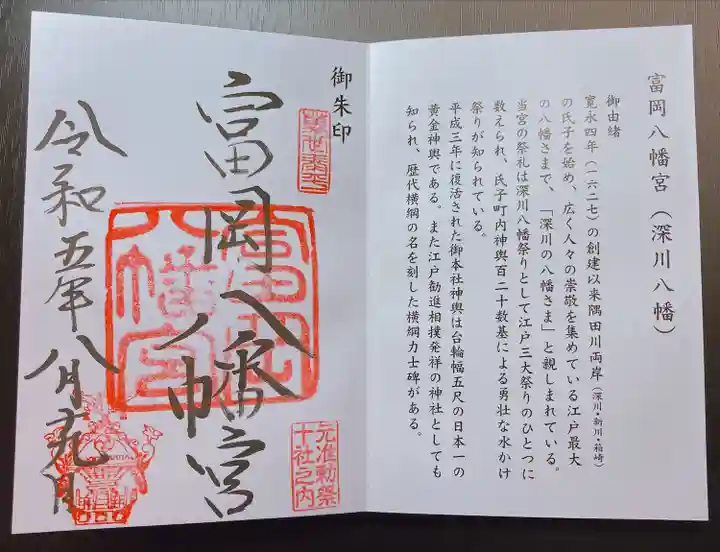 富岡八幡宮（深川八幡）
御由緒
寛永四年（一六二七）の創建以来隅田川両岸（深川・新川・箱崎）
の氏子を始め、広く人々の崇敬を集めている江戸最大
の八幡さまで、「深川の八幡さま」と親しまれている。
当宮の祭礼は深川八幡祭りとして江戸三大祭りのひとつに
数えられ、氏子町内神輿百二十数基による勇壮な水かけ
祭りが知られている。
平成三年に復活された御本社神輿は台輪幅五尺の日本一の
黄金神輿である。また江戸勧進相撲発祥の神社としても
知られ、歴代横綱の名を刻した横綱力士碑がある。
御朱印
富岡八幡宮
富岡
八幡宮
元准勅祭
十社之内
令和五年八月九日